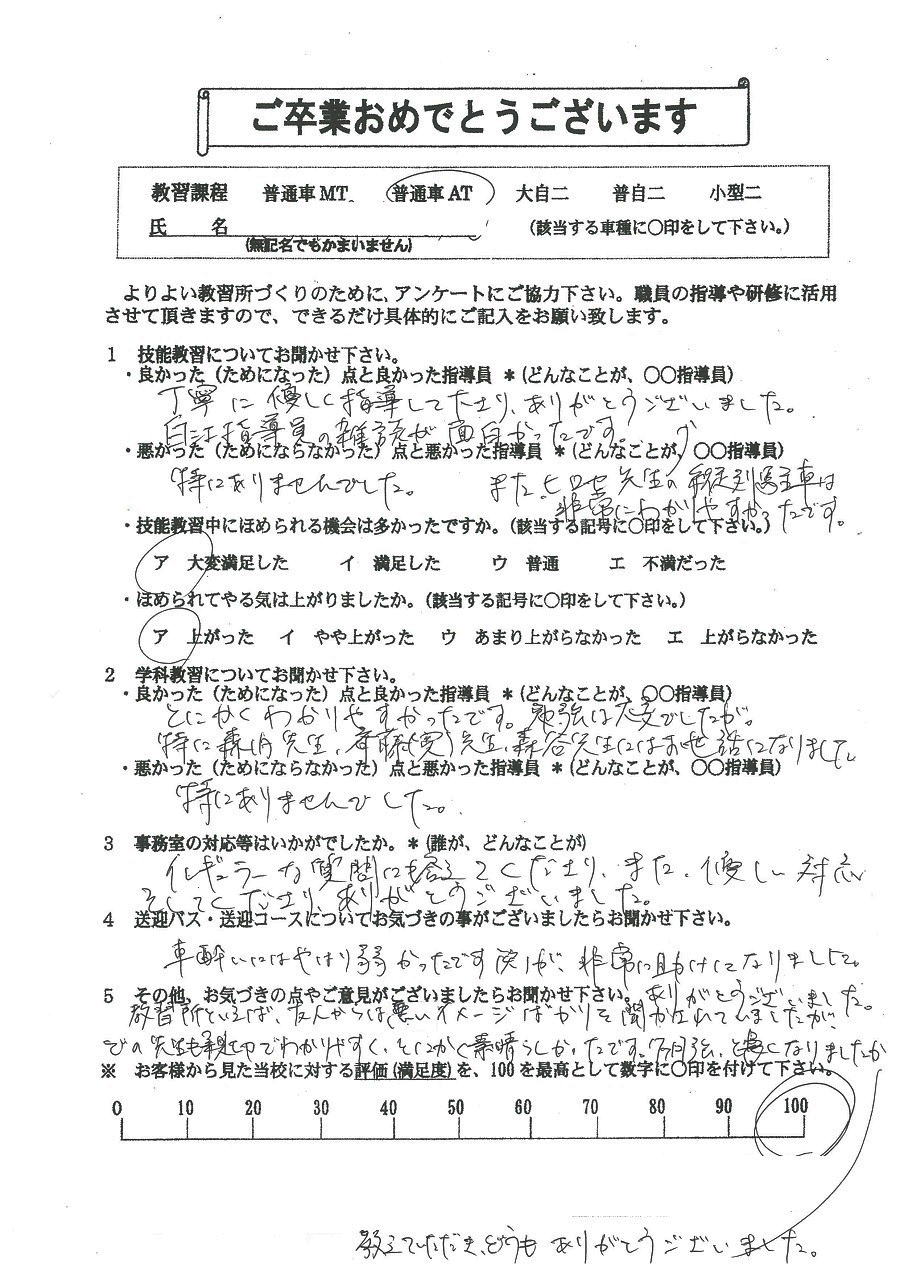 ご卒業おめでとうございます
教習課程 普通車MT 普通車AT 大自二 普自二 小型二
氏 名 (該当する車種に〇印をして下さい。)
(無記名でもかまいません)
よりよい教習所づくりのために、アンケートにご協力下さい。職員の指導や研修に活用
させて頂きますので、できるだけ具体的にご記入をお願い致します。
1 技能教習についてお聞かせ下さい。
・良かった(ためになった)点と良かった指導員 *(どんなことが、〇〇指導員)
丁寧に優しく指導して下さり、ありがとうございました。
指導員の雑談が面白かったです。
・悪かった(ためにならなかった)点と悪かった指導員 *(どんなことが、〇〇指導員)
特にありませんでした。 また、ヒロセ先生の縦列駐車は
非常にわかりやすかったです。
・技能教習中にほめられる機会は多かったですか。(該当する記号に〇印をして下さい。)
ア 大変満足した イ 満足した ウ 普通 エ 不満だった
・ほめられてやる気は上がりましたか。(該当する記号に〇印をして下さい。)
ア 上がった イ やや上がった ウ あまり上がらなかった エ 上がらなかった
2 学科教習についてお聞かせ下さい。
・良かった(ためになった)点と良かった指導員 *(どんなことが、〇〇指導員)
とにかくわかりやすかったです。勉強は大変でしたが。
特に 先生、斉藤 先生、森谷先生にはお世話になりました
・悪かった(ためにならなかった)点と悪かった指導員 *(どんなことが、〇〇指導員)
特にありませんでした。
3 事務室の対応等はいかがでしたか。*(誰が、どんなことが)
イレギュラーな質問にも答えてくださり、また、優しい対応
をしてくださり、ありがとうございました。
4 送迎バス・送迎コースについてお気づきの事がございましたらお聞かせ下さい。
車酔いにはやはり弱かったです が、非常に助けになりました。
5 その他、お気づきの点やご意見がございましたらお聞かせ下さい。ありがとうございました。
教習所といえば、友人からは悪いイメージばかりを聞かされていましたが、
どの先生も親切でわかりやすく、とにかく素晴らしかったです。 長くなりましたが
※ お客様から見た当校に対する評価(満足度)を、100を最高として数字に〇印を付けて下さい。
0 10 20 30 40 50 60 70 80 90 100
教えていただき、どうもありがとうございました。